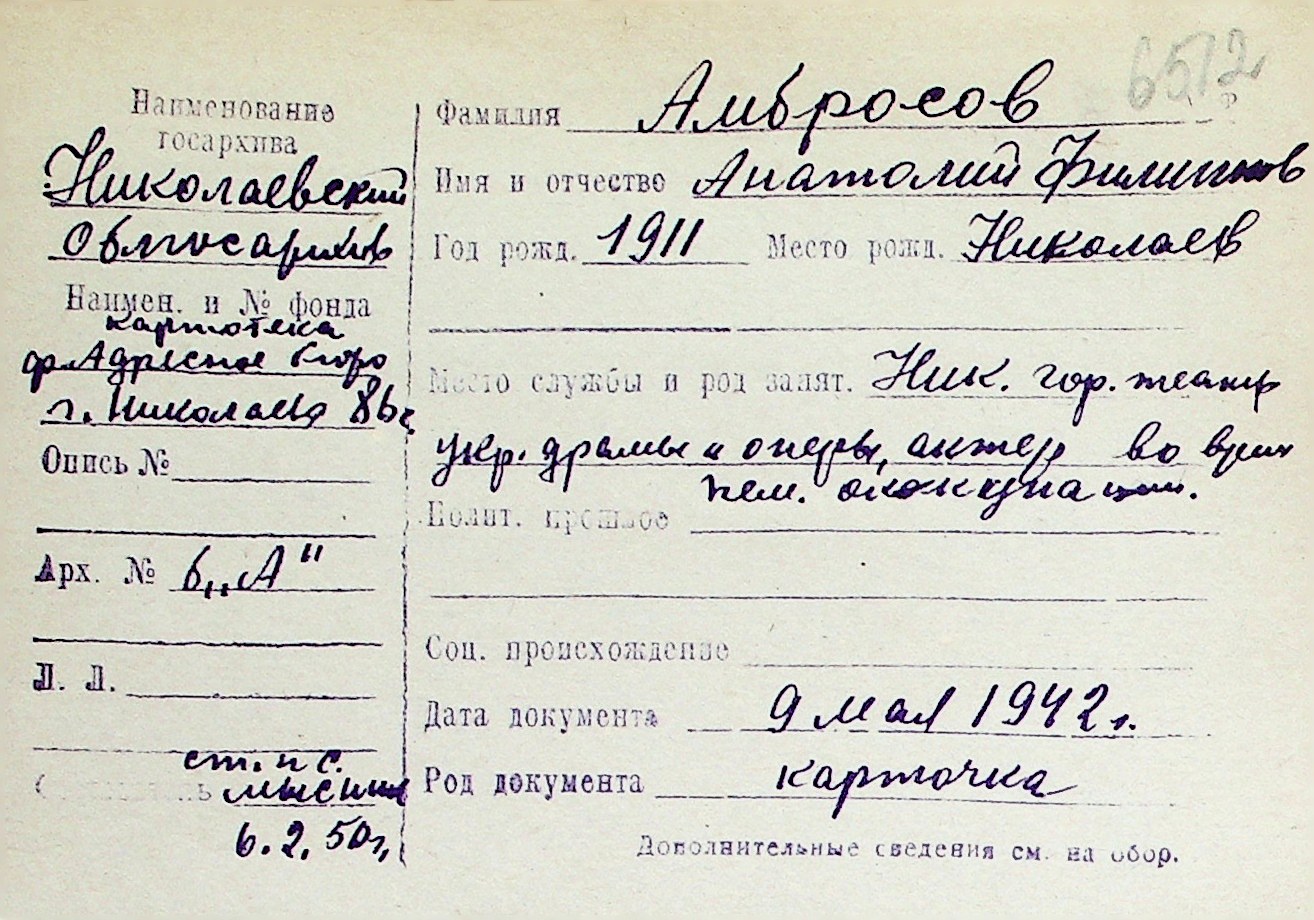 6512
Наименование
госархива
Николаевский
Облгосархив
Наимен. и № фонда
картотека
ф. Адресное бюро
г. Николаева
Опись №
Арх. № 6 „А"
Л. Л.
ст. н. с.
6.2.50 г.
Фамилия Амбросов
Имя и отчество Анатолий Филиппов
Год рожд. 1911 Место рожд. Николаев
Место службы и род занят. Ник. гор. театр
укр. драмы и оперы, актер во врем
нем. оккупации.
Полит. прошлое
Соц. происхождение
Дата документа 9 мая 1942 г.
Род документа карточка
Дополнительные сведения см. на обор.